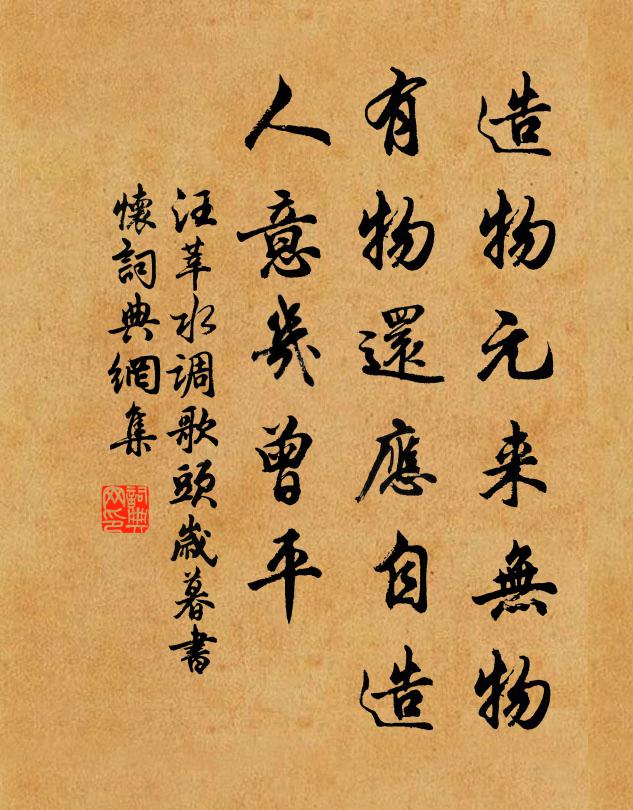 造物元来無物
有物還應自造
人意幾曾平
汪莘水调歌頭歲暮書
懷詞典網集
詞典网印